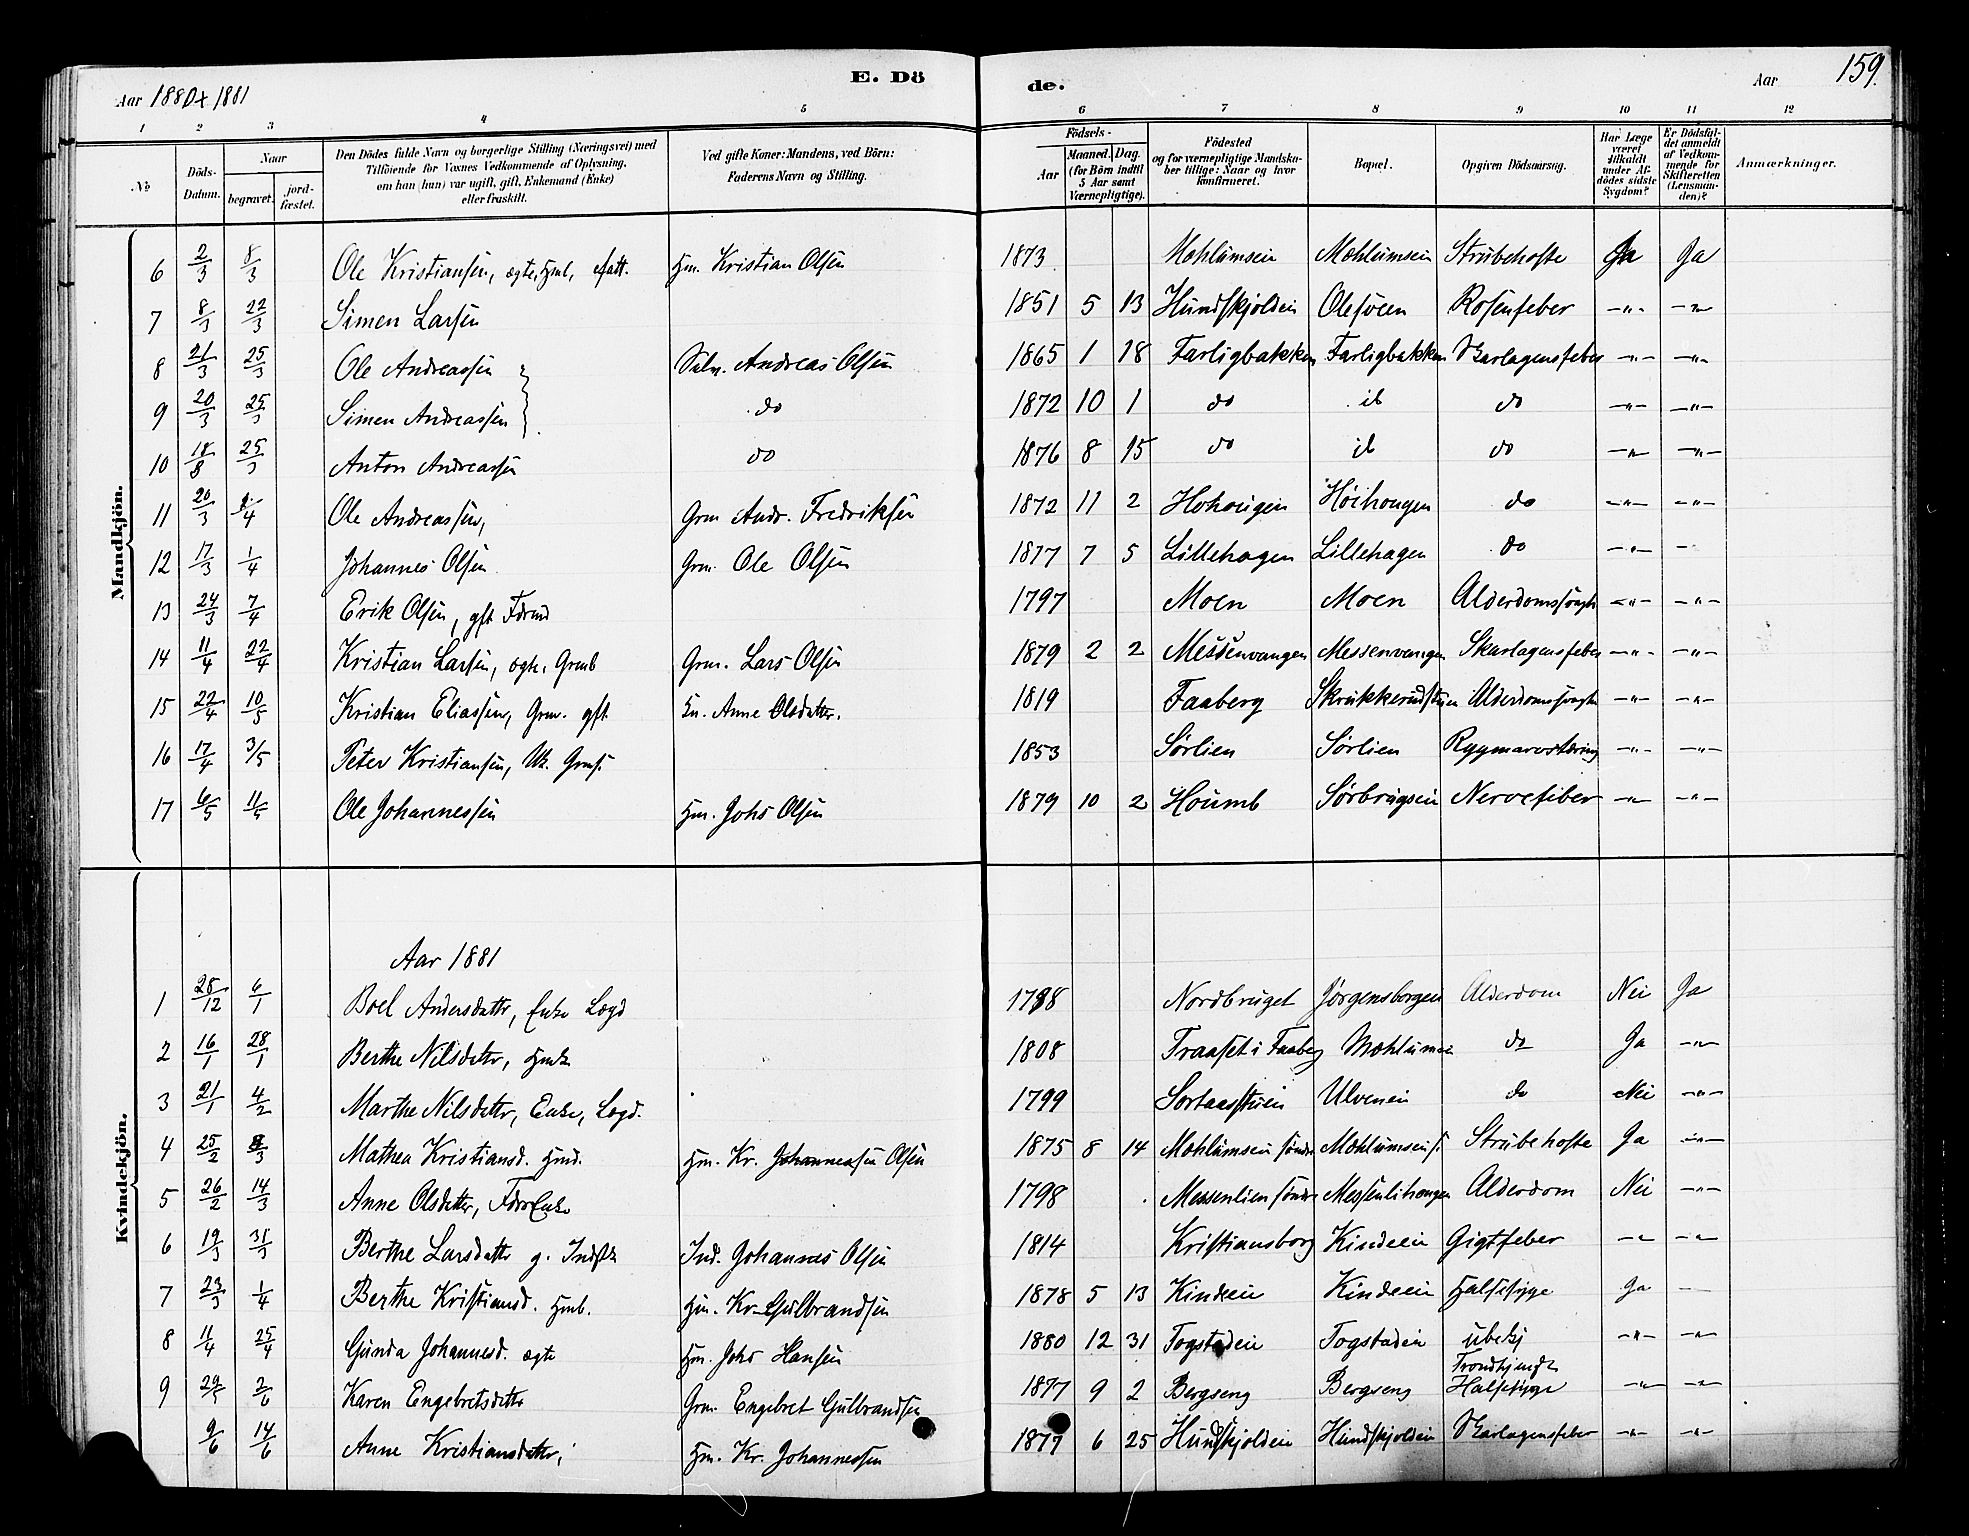 Aar 1880 & 1881
E. Dö
de.
Aar
159.
1 2 3 4 5 6 7 8 9 10 11 12
No
Döds-Datum.
Naar
begravet.
jord-fæstet.
Den Dödes fulde Navn og borgerlige Stilling (Næringsvei) med
Tilföiende for Voxnes Vedkommende af Oplysning,
om han (hun) var ugift, gift, Enkemand (Enke)
eller fraskilt.
Ved gifte Koner: Mandens, ved Börn:
Faderens Navn og Stilling.
Födsels-
Aar
Maaned. Dag.
(for Börn indtil
5 Aar samt
Værnepligtige).
Födested
og for værnepligtige Mandska-
ber tillige: Naar og hvor
konfirmeret.
Bopæl.
Opgiven Dödsaarsag.
Har Læge
været
tilkaldt
under Af-
dödes sidste
Sygdom?
Er Dödsfal-
det anmeldt
af Vedkom-
mende for
Skifteretten
(Lensman-
den)?
Anmærkninger.
Mandkjön.
6 2/3 8/3 Ole Kristiansen, ægte, Hm. Kristian Olsen 1873 Mæhlumseie Mæhlumseie Strubehoste Ja Ja
7 8/3 22/3 Simen Larsen 1851 5 13 Hundskjoldeie Olesveen Rosenfeber -"- -"-
8 21/3 25/3 Ole Andreassen Andreas Olsen 1865 1 18 Farligbakken Farligbakken Skarlagensfeber -"- -"-
9 20/3 25/3 Simen Andreassen do 1872 10 1 do ib do -"- -"-
10 25/3 Anton Andreassen do 1876 8 15 do ib do -"- -"-
11 20/3 /4 Ole Andreassen, Grm Andr. Fredriksen 1872 11 2 Hohougen Høihougen do -"- -"-
12 17/3 1/4 Johannes Olsen Grm. Ole Olsen 1877 7 5 Lillehagen Lillehagen do -"- -
13 24/3 7/4 Erik Olsen, gft 1797 Moen Moen Alderdomssvagh -"- -"-
14 11/4 22/4 Kristian Larsen, ægte, Grmb Grm. Lars Olsen 1879 2 2 Messenvangen Messenvangen Skarlagensfeber -"- -"-
15 22/4 10/5 Kristian Eliassen, Grm. gft. Anne Olsdatter. 1819 Faaberg Alderdomssvagh -"- -"-
16 17/4 3/5 Peter Kristiansen, Uk. Grms. 1853 Sørlien Sørlien Rygmarvstæring -"- -"-
17 6/5 11/5 Ole Johannessen Hm. Johs Olsen 1879 10 2 Houmb Sørbrugseie Nervefeber -"- -"-
Kvindekjön.
Aar 1881
1 28/12 6/1 Boel Andersdatter, Enke Lægd 1788 Nordbruget Jørgensborgeie Alderdom Nei Ja
2 16/1 28/1 Berthe Nilsdatter, 1808 Traaset i Faaberg Mæhlumeie do Ja -"-
3 21/1 4/2 Marthe Nilsdatter, Enke, Lægd. 1799 Sortaasstuen Ulveneie do Nei -"-
4 25/2 8/3 Mathea Kristiansd. Hmd. Hm. Kr. Johannessen Olsen 1875 8 14 Mæhlumseie søndre Mæhlumseie s. Strubehoste Ja -"-
5 26/2 14/3 Anne Olsdatter, 1798 Messenlien søndre Messenlihougen Alderdom Nei -"-
6 19/3 31/3 Berthe Larsdatter g. Ind. Johannes Olsen 1814 Kristiansborg Kindeeie Gigtfeber -"- -"-
7 23/3 1/4 Berthe Kristiansd. Hmb. Hm. Kr. Gulbrandsen 1878 5 13 Kindeeie Kindeeie Halssyge Ja -
8 11/4 25/4 Gunda Johannesd. ægte Hm. Johs Hansen 1880 12 31 Togstadeie Togstadeie ubekj -"- -"-
9 29/5 2/6 Karen Engebretsdatter Grm. Engebret Gulbrandsen 1877 9 2 Bergseng Bergseng Trondhjemske Halssyge -"- -"-
9/6 14/6 Anne Kristiansdatter, Hm. Kr. Johannessen 1877 6 25 Hundskjoldeie Hundskjoldeie Skarlagensfeber -"- -"-